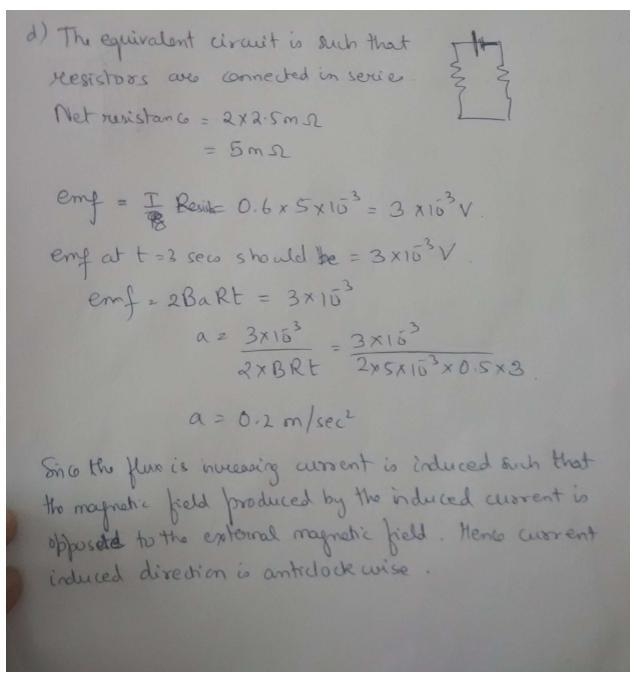 d) The equivalent circuit is such that
resistors are connected in serie
Net resistance = 2×2.5mΩ
= 5mΩ
emf = I Resist = 0.6 × 5×10⁻³ = 3 ×10⁻³ V.
emf at t=3 secs should be = 3×10⁻³ V.
emf = 2BaRt = 3×10⁻³
a = 3×10⁻³ / 2×BRt = 3×10⁻³ / 2×5×10⁻³×0.5×3.
a = 0.2 m/sec²
Since the flux is increasing current is induced such that
the magnetic field produced by the induced current is
opposed to the external magnetic field. Hence current
induced direction is anticlockwise.